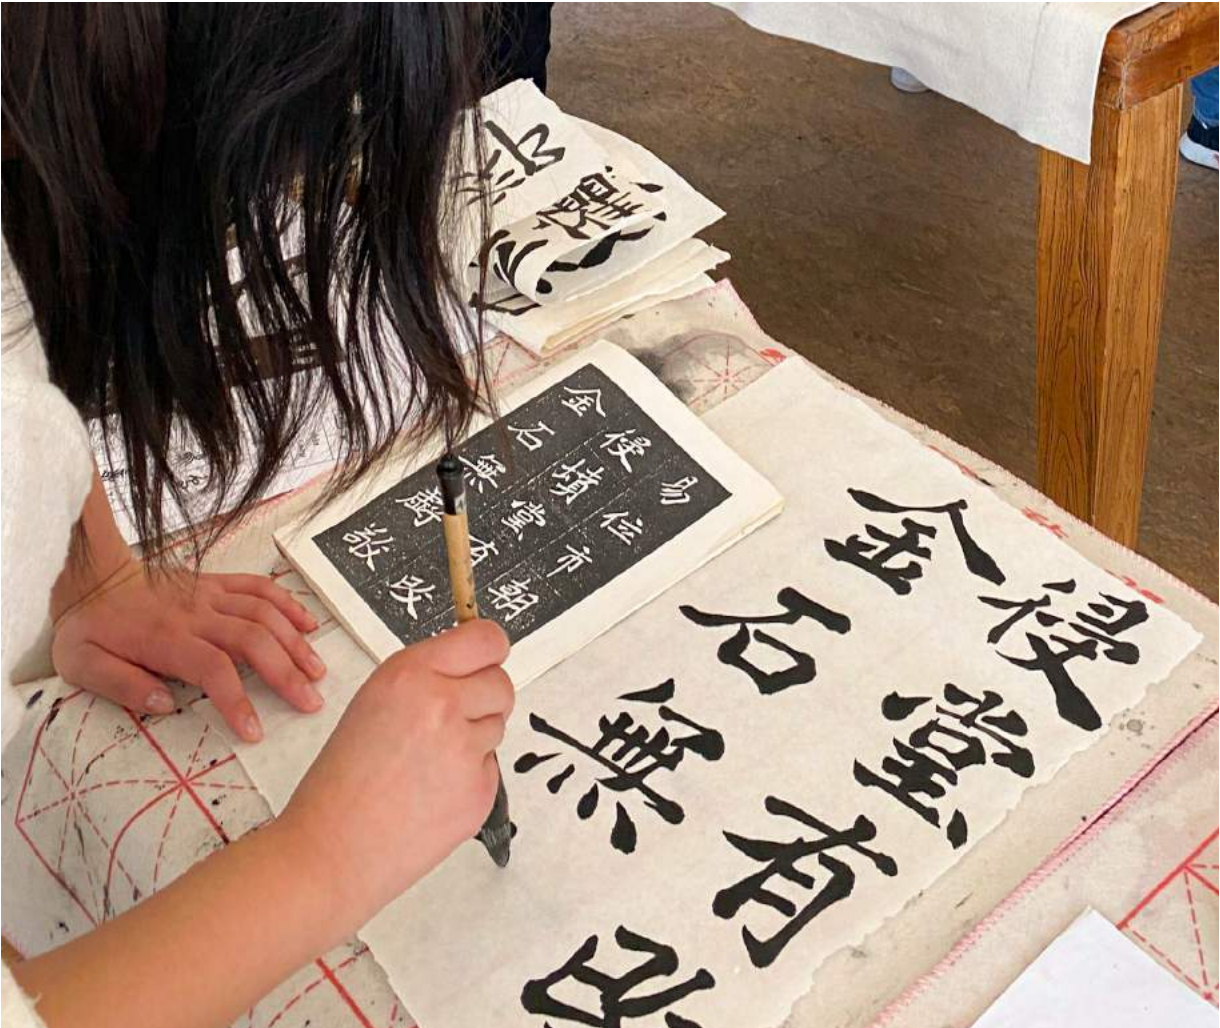 易位市朝
侵墳堂有改
金石無虧敬
侵堂有改
金石無